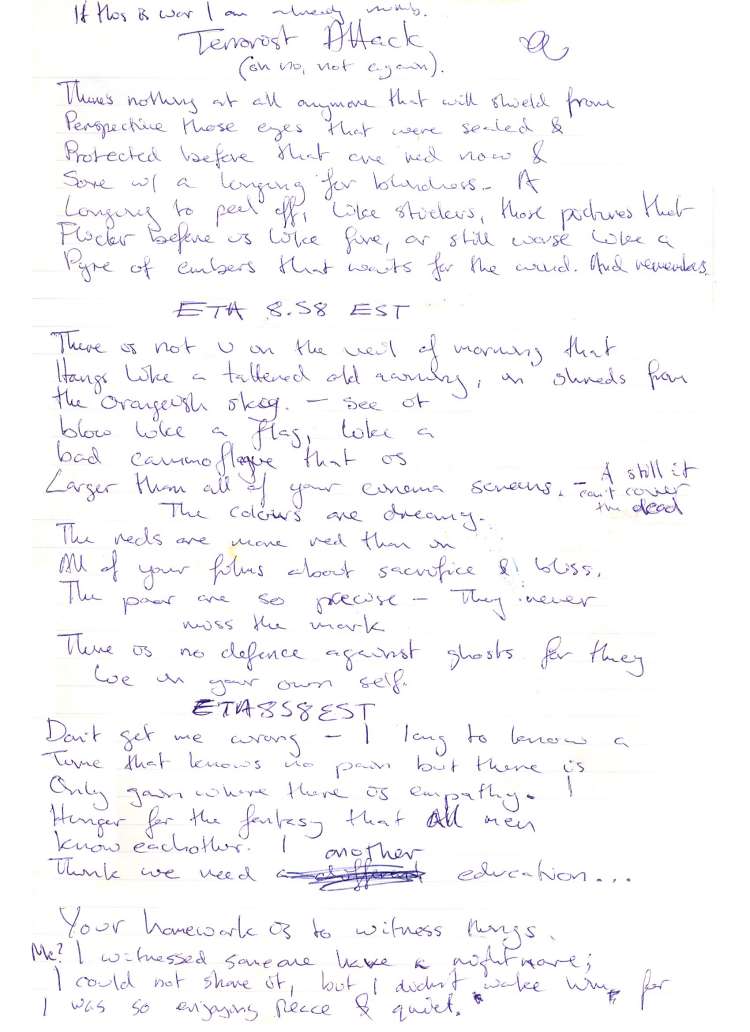 If this is war I am already numb.
Terrorist Attack
(oh no, not again).
There's nothing at all anymore that will shield from
Perspective those eyes that were sealed &
Protected before that are red now &
Sore w/ a longing for blindness - A
Longing to peel off, like stickers, those pictures that
Flicker before us like fire, or still worse like a
Pyre of embers that waits for the wind. And remembers.
ETA 8.58 EST
There is not U on the veil of morning that
Hangs like a tattered old awning, in shreds from
the Orangeish sky. - See it
blow like a flag, like a
bad cammoflague that is
Larger than all of your cinema screens. - & still it can't cover the dead
The colours are dreamy.
The reds are more red than in
All of your films about sacrifice & bliss.
The poor are so precise - They never
miss the mark
There is no defence against ghosts for they
live in your own self.
ETA858EST
Don't get me wrong - I long to know a
Time that knows no pain but there is
Only gain where there is empathy. I
Hunger for the fantasy that All men
know eachother. I
Think we need another education...
Your homework is to witness things.
Me? I witnessed someone have a nightmare;
I could not share it, but I didn't wake him for
I was so enjoying peace & quiet.